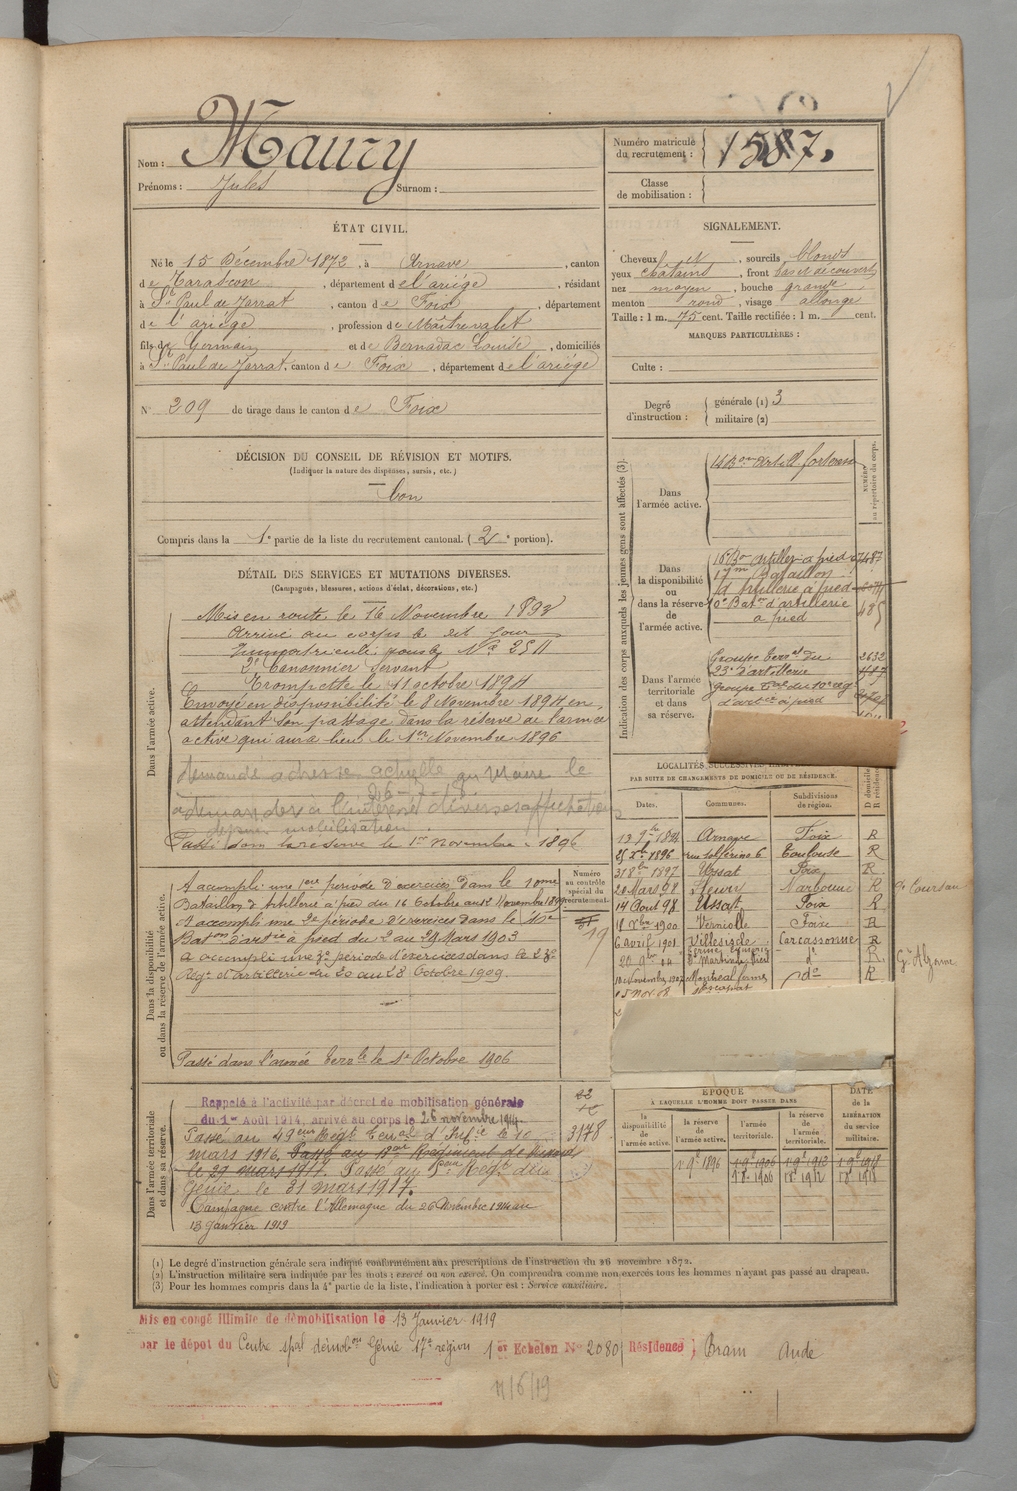 Nom : Maury
Prénoms : Jules Surnom :
Numéro matricule du recrutement : 1587.
Classe de mobilisation :
ÉTAT CIVIL.
Né le 15 Décembre 1872, à Arnave, canton
de Tarascon, département de l'ariège, résidant
à St Paul de Jarrat, canton de Foix, département
de l'ariège, profession de Maître valet
fils de Germain et de Bernadac Louise, domiciliés
à St Paul de Jarrat, canton de Foix, département de l'ariège
N° 209 de tirage dans le canton de Foix
SIGNALEMENT.
Cheveux et, sourcils blonds
yeux chatains, front bas et découvert
nez moyen, bouche grande,
menton rond, visage allongé
Taille : 1 m. 75 cent. Taille rectifiée : 1 m. cent.
MARQUES PARTICULIÈRES :
Culte :
Degré d'instruction : générale (1) 3
militaire (2)
DÉCISION DU CONSEIL DE RÉVISION ET MOTIFS.
(Indiquer la nature des dispenses, sursis, etc.)
bon
Compris dans la 1e partie de la liste du recrutement cantonal. (2e portion).
DÉTAIL DES SERVICES ET MUTATIONS DIVERSES.
(Campagnes, blessures, actions d'éclat, décorations, etc.)
Dans l'armée active.
Mis en route le 16 Novembre 1893
Arrivé au corps le dit jour
Immatriculé sous le No 2511
2e Canonnier Servant
Trompette le 11 octobre 1894
Envoyé en disponibilité le 8 Novembre 1894 en
attendant son passage dans la réserve de l'armée
active qui aura lieu le 1er Novembre 1896
demandé adresse actuelle au Maire le
mobilisation
Passé dans la réserve le 1er Novembre 1896
Dans la disponibilité ou dans la réserve de l'armée active.
A accompli une 1ère période d'exercices dans le 10me
Bataillon d'Artillerie à pied du 16 Octobre au 12 Novembre 1899
A accompli une 2e période d'exercices dans le 10e
Baton d'artie à pied du 2 au 29 Mars 1903
a accompli une 3e période d'exercices dans le 23e
Régt d'artillerie du 20 au 28 Octobre 1909.
Passé dans l'armée Terrle le 1er Octobre 1906
Numéro au contrôle spécial du recrutement.
19
Dans l'armée territoriale et dans sa réserve.
Rappelé à l'activité par décret de mobilisation générale
du 1er Août 1914, arrivé au corps le 26 novembre 1914.
Passé au 49eme Régt Terral d'Infie le 10
mars 1916, Passé au 18me Régiment de
le 29 mars 1917 Passé au 5eme Régt du
Génie le 31 mars 1917.
Campagne contre l'Allemagne du 26 Novembre 1914 au
13 Janvier 1919
22
3178
Indication des corps auxquels les jeunes gens sont affectés (3).
NUMÉRO au répertoire du corps.
Dans l'armée active.
Dans la disponibilité ou dans la réserve de l'armée active.
16e Bon artillerie à pied 7487
17me Bataillon
d'Artillerie à pied
10e Baton d'artillerie 485
à pied
Dans l'armée territoriale et dans sa réserve.
Groupe Terral du 2632
23e d'artillerie
Groupe du 10e rég
d'artie à pied
LOCALITÉS SUCCESSIVES
PAR SUITE DE CHANGEMENTS DE DOMICILE OU DE RÉSIDENCE.
Dates. Communes. Subdivisions de région. D domicile R résidence
13 9bre 1894 Arnave Foix R
25 Xbre 1896 rue Solférino 6 Toulouse R
31 8bre 1897 Ussat Foix R
20 Mars 98 Fleury Narbonne R
14 Aout 98 Ussat Foix R
18 Xbre 1900 Verniolle Foix R
6 avril 1901 Villesiscle Carcassonne R
20 9bre 04 St Martin le Vieil do R
10 Novembre 1907 Montréal ferme do R
15 Nov 08
ÉPOQUE
À LAQUELLE L'HOMME DOIT PASSER DANS
la disponibilité de l'armée active.
la réserve de l'armée active.
l'armée territoriale.
la réserve de l'armée territoriale.
DATE de la LIBÉRATION du service militaire.
1 9e 1896 1 9e 1906 1 9e 1912 1 9e 1918
1 8e 1906 1 8e 1912 1 8e 1918
(1) Le degré d'instruction générale sera indiqué conformément aux prescriptions de l'instruction du 26 novembre 1872.
(2) L'instruction militaire sera indiquée par les mots : exercé ou non exercé. On comprendra comme non exercés tous les hommes n'ayant pas passé au drapeau.
(3) Pour les hommes compris dans la 4e partie de la liste, l'indication à porter est : Service auxiliaire.
Mis en congé illimité de démobilisation le 13 Janvier 1919
par le dépot du Centre spal démobon Génie 17e région 1er Echelon No 2080 Résidence ; Bram Aude
11/6/19